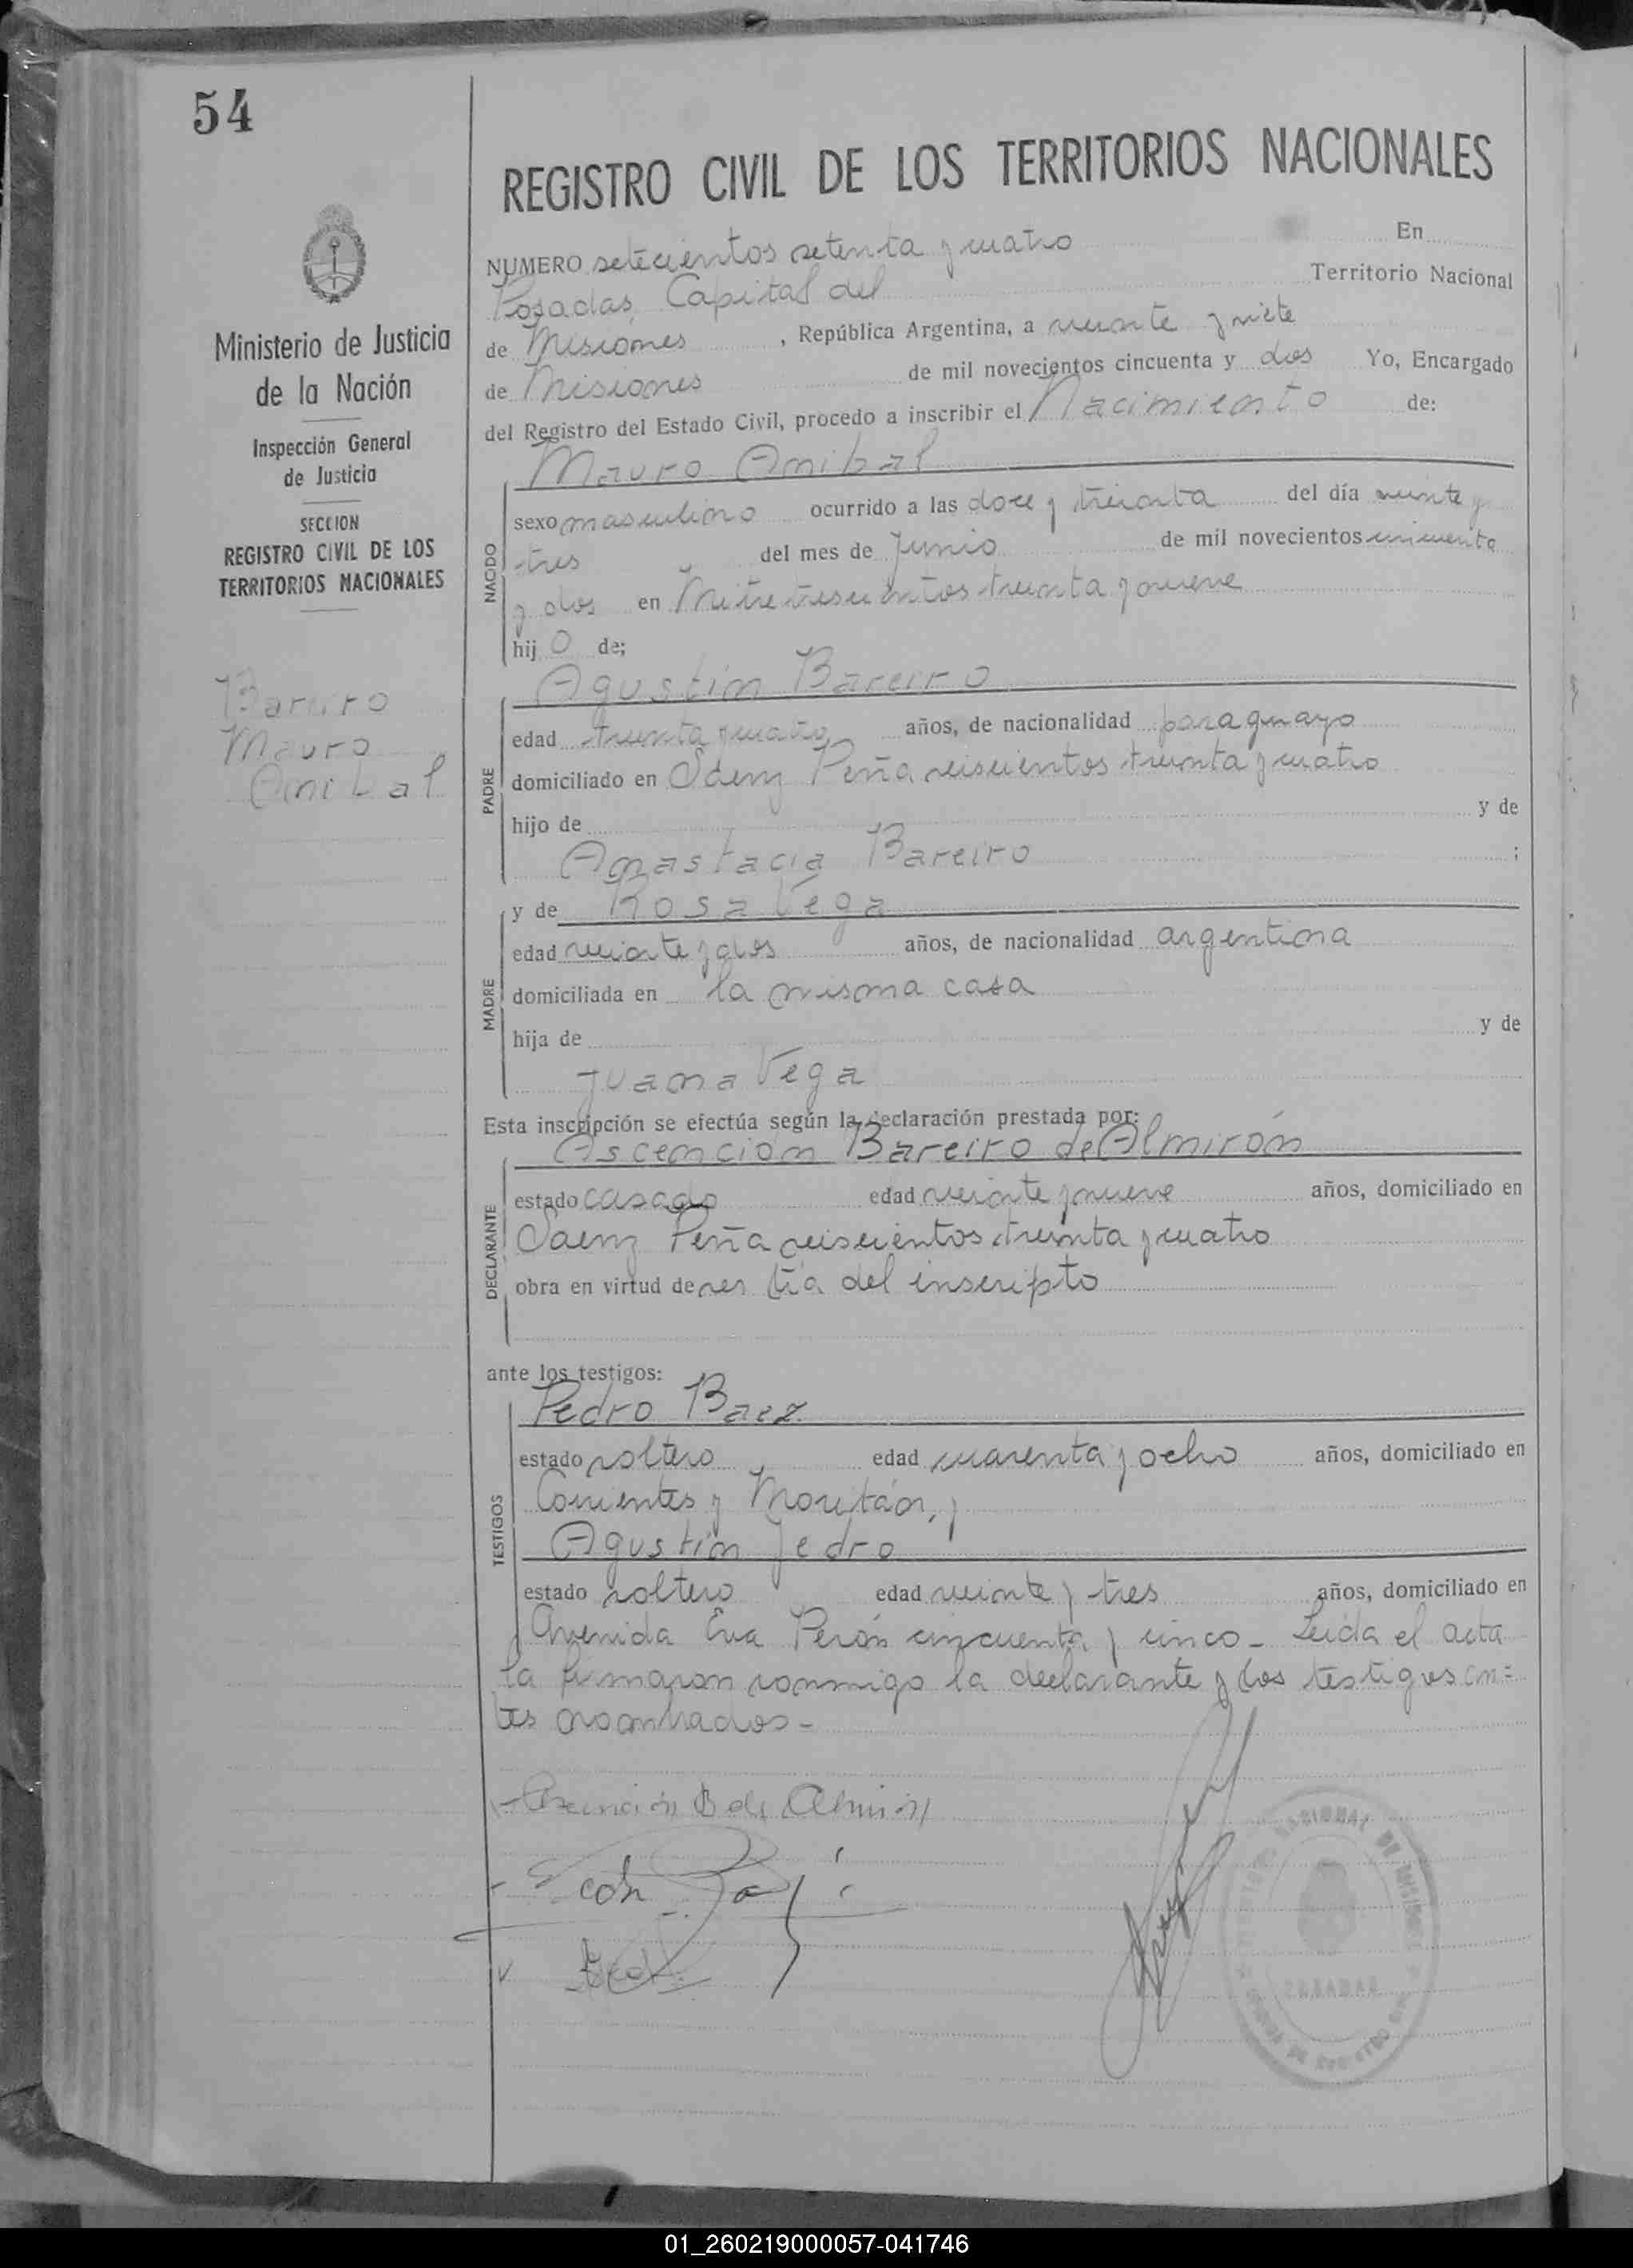 54
REGISTRO CIVIL DE LOS TERRITORIOS NACIONALES
NUMERO setecientos setenta y cuatro En
Posadas, Capital del Territorio Nacional
de Misiones, República Argentina, a veinte y siete
de Misiones de mil novecientos cincuenta y dos Yo, Encargado
del Registro del Estado Civil, procedo a inscribir el Nacimiento de:
Mauro Anibal
Ministerio de Justicia
de la Nación
Inspección General
de Justicia
SECCION
REGISTRO CIVIL DE LOS
TERRITORIOS NACIONALES
Bareiro
Mauro
Anibal
NACIDO
sexo masculino ocurrido a las doce y treinta del día veinte y
tres del mes de Junio de mil novecientos cincuenta
y dos en Mitre trescientos treinta y nueve
hijo de;
Agustin Bareiro
PADRE
edad treinta y cuatro años, de nacionalidad paraguayo
domiciliado en Saenz Peña seiscientos treinta y cuatro
hijo de y de
Anastacia Bareiro ;
y de Rosa Vega
MADRE
edad veinte y dos años, de nacionalidad argentina
domiciliada en la misma casa
hija de y de
Juana Vega
Esta inscripción se efectúa según la declaración prestada por:
Ascención Bareiro de Almirón
DECLARANTE
estado casado edad veinte y nueve años, domiciliado en
Saenz Peña seiscientos treinta y cuatro
obra en virtud de ser tía del inscripto
ante los testigos:
Pedro Baez
TESTIGOS
estado soltero edad cuarenta y ocho años, domiciliado en
Corrientes y Moritán, y
Agustín Jedro
estado soltero edad veinte y tres años, domiciliado en
Avenida Eva Perón cincuenta y cinco- Leida el acta
la firmaron conmigo la declarante y los testigos an=
tes nombrados-
Ascención B de Almirón
POSADAS
01_260219000057-041746